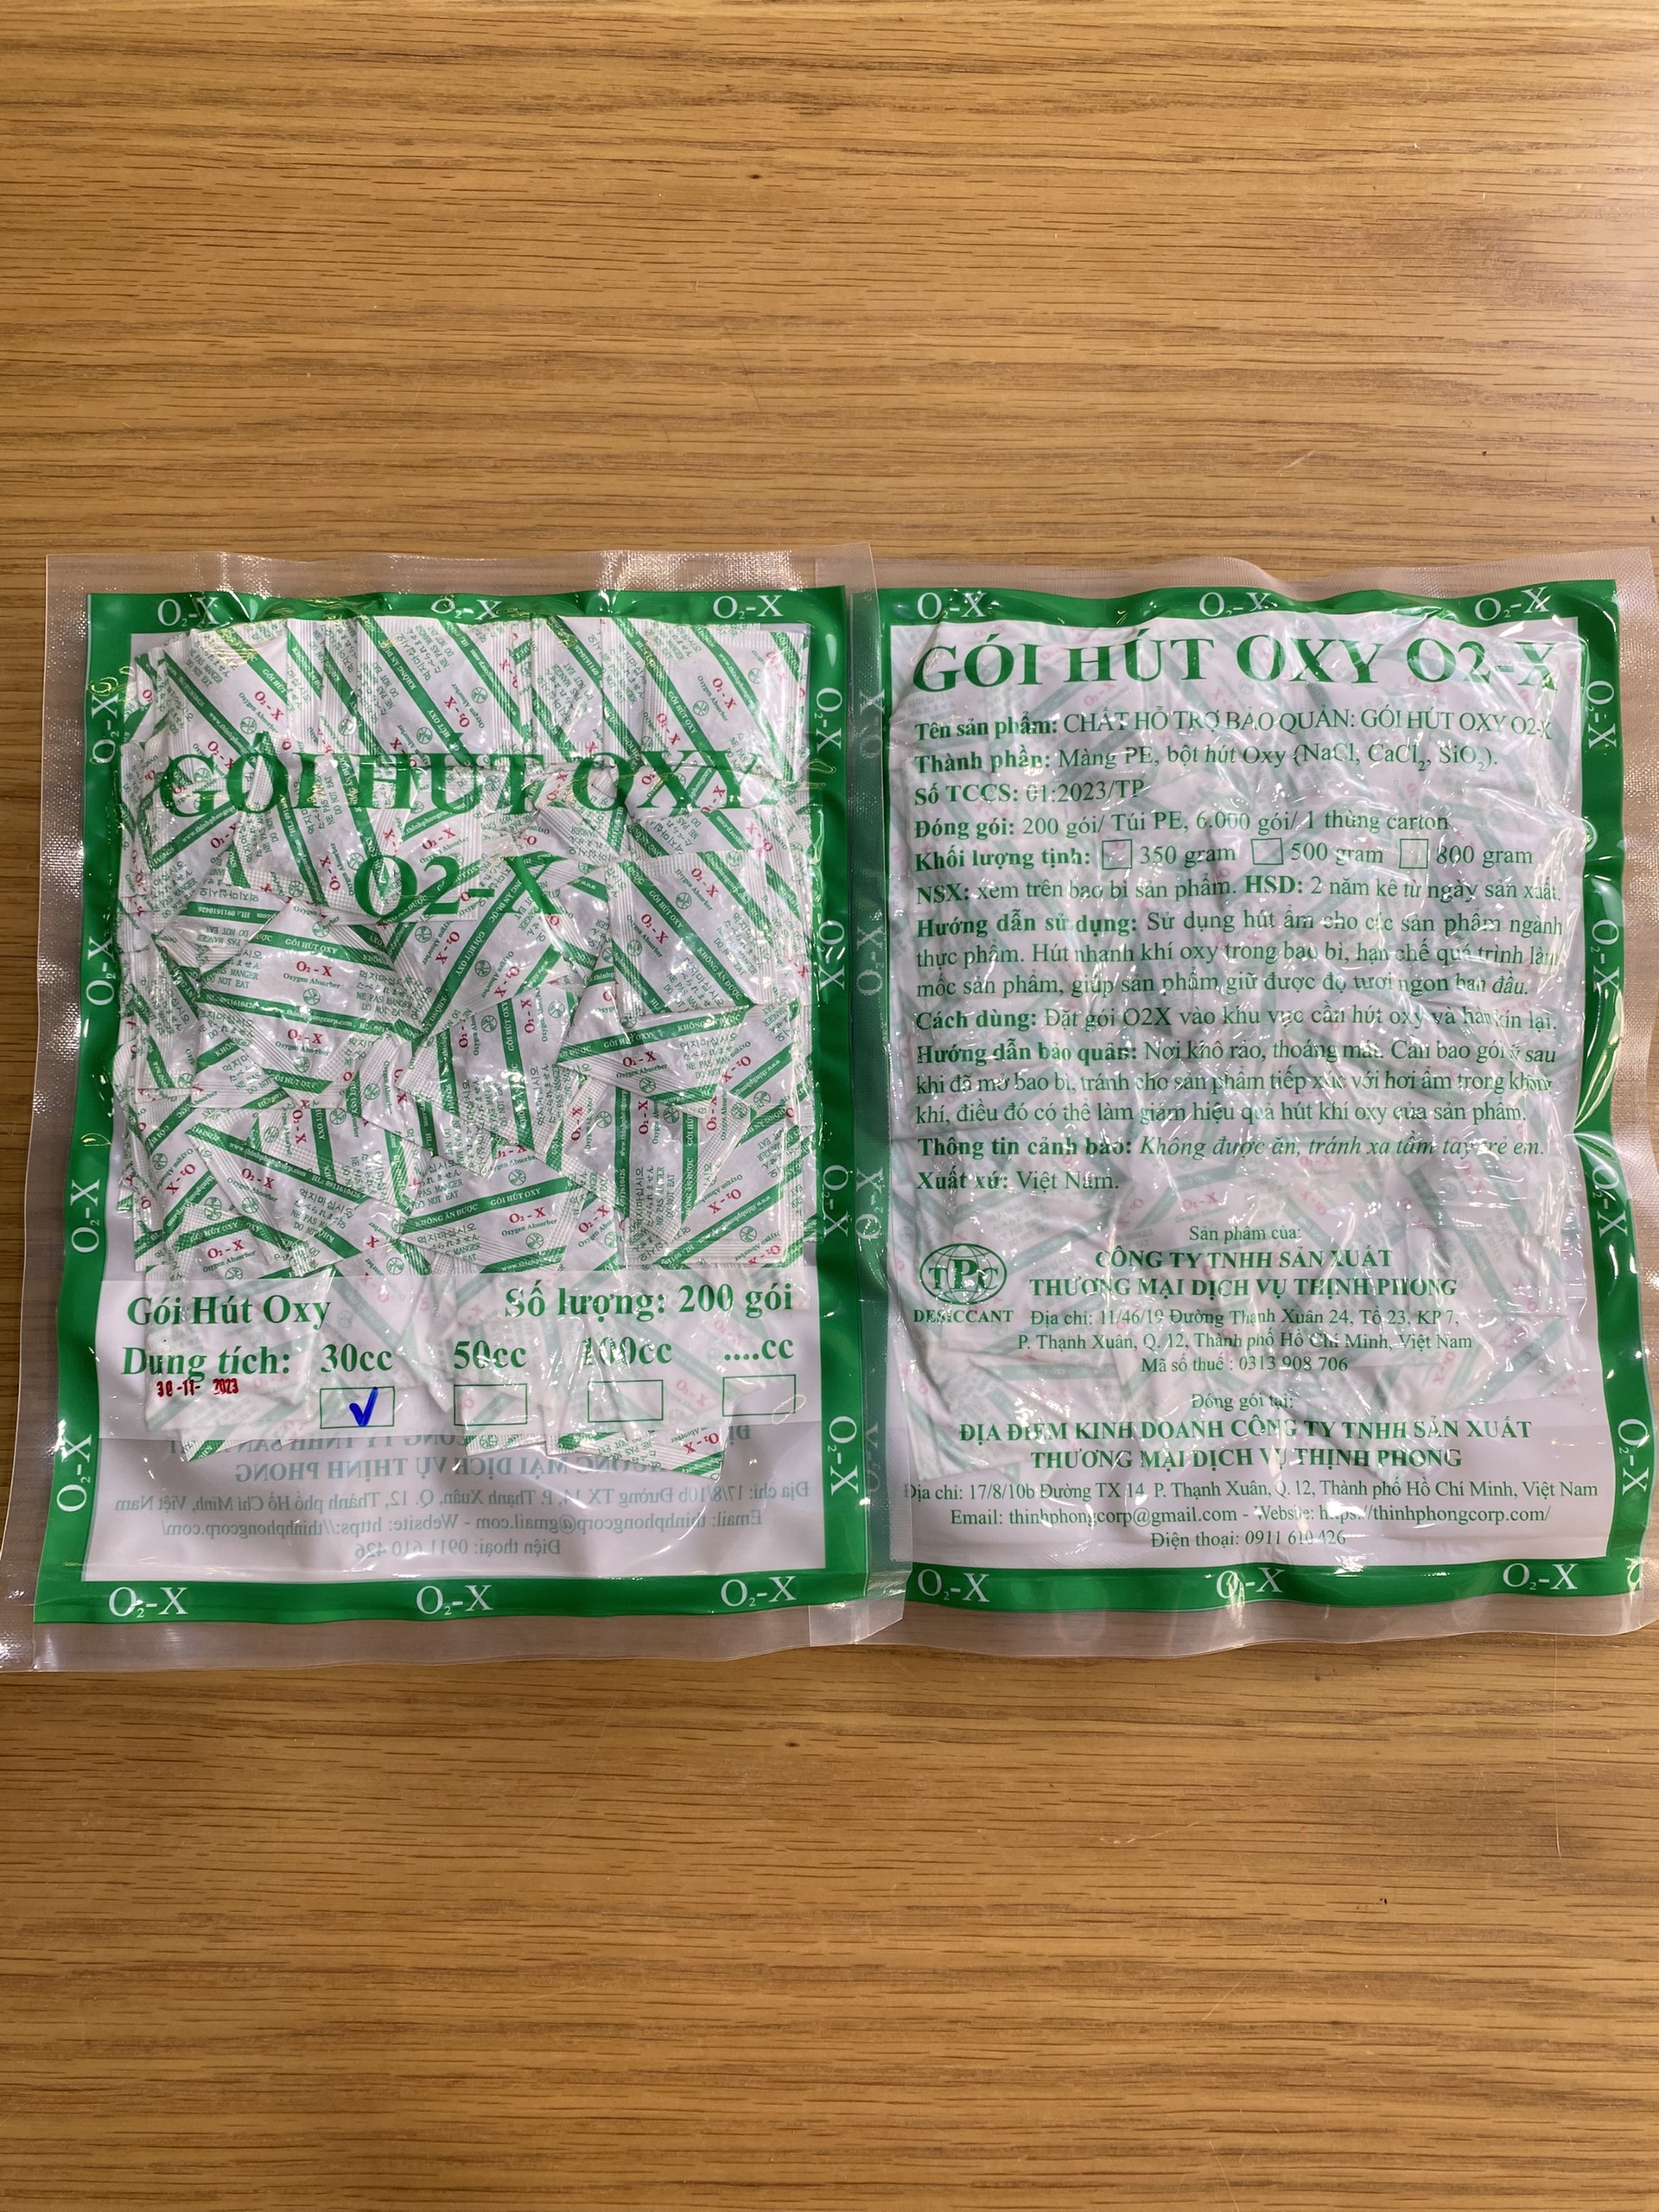 O₂-X O₂-X O₂-X
GÓI HÚT OXY
O2-X
Gói Hút Oxy
Số lượng: 200 gói
Dung tích: 30cc 50cc 100cc ....cc
30-11-2023
O₂-X O₂-X O₂-X
O₂-X O₂-X O₂-X
GÓI HÚT OXY O2-X
Tên sản phẩm: CHẤT HỖ TRỢ BẢO QUẢN: GÓI HÚT OXY O2-X
Thành phần: Màng PE, bột hút Oxy (NaCl, CaCl₂, SiO₂).
Số TCCS: 01:2023/TP
Đóng gói: 200 gói/ Túi PE, 6.000 gói/ 1 thùng carton
Khối lượng tịnh: 350 gram 500 gram 800 gram
NSX: xem trên bao bì sản phẩm. HSD: 2 năm kể từ ngày sản xuất.
Hướng dẫn sử dụng: Sử dụng hút ẩm cho các sản phẩm ngành
thực phẩm. Hút nhanh khí oxy trong bao bì, hạn chế quá trình làm
mốc sản phẩm, giúp sản phẩm giữ được độ tươi ngon ban đầu.
Cách dùng: Đặt gói O2X vào khu vực cần hút oxy và hàn kín lại.
Hướng dẫn bảo quản: Nơi khô ráo, thoáng mát. Cần bao gói sau
khi đã mở bao bì, tránh cho sản phẩm tiếp xúc với hơi ẩm trong không
khí, điều đó có thể làm giảm hiệu quả hút khí oxy của sản phẩm.
Thông tin cảnh báo: Không được ăn, tránh xa tầm tay trẻ em.
Xuất xứ: Việt Nam.
Sản phẩm của:
TPC
DESICCANT
CÔNG TY TNHH SẢN XUẤT
THƯƠNG MẠI DỊCH VỤ THỊNH PHONG
Địa chỉ: 11/46/19 Đường Thạnh Xuân 24, Tổ 23, KP 7,
P. Thạnh Xuân, Q. 12, Thành phố Hồ Chí Minh, Việt Nam
Mã số thuế : 0313 908 706
Đóng gói tại:
ĐỊA ĐIỂM KINH DOANH CÔNG TY TNHH SẢN XUẤT
THƯƠNG MẠI DỊCH VỤ THỊNH PHONG
Địa chỉ: 17/8/10b Đường TX 14, P. Thạnh Xuân, Q. 12, Thành phố Hồ Chí Minh, Việt Nam
Email: thinhphongcorp@gmail.com - Website: https://thinhphongcorp.com/
Điện thoại: 0911 610 426
O₂-X O₂-X O₂-X